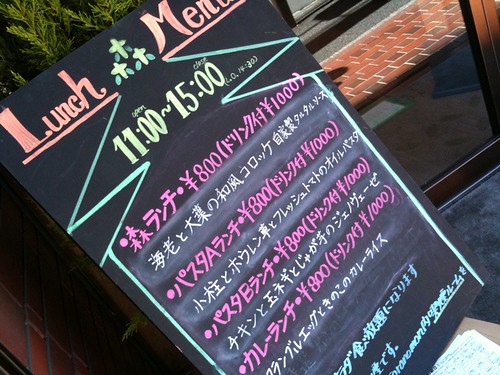 Lunch ホホホ Menu
open close
11:00~15:00 (L.O.14:30)
•森ランチ•¥800(ドリンク付¥1000)
海老と大葉の和風コロッケ 自家製タルタルソース
•パスタAランチ•¥800(ドリンク付¥1000)
小柱とホウレン草とフレッシュトマトのオイルパスタ
•パスタBランチ•¥800(ドリンク付¥1000)
チキンと玉ネギとじゃが芋のジェノヴェーゼ
•カレーランチ•¥800(ドリンク付¥1000)
スクランブルエッグときのこのカレーライス
食べ放題になります
です。